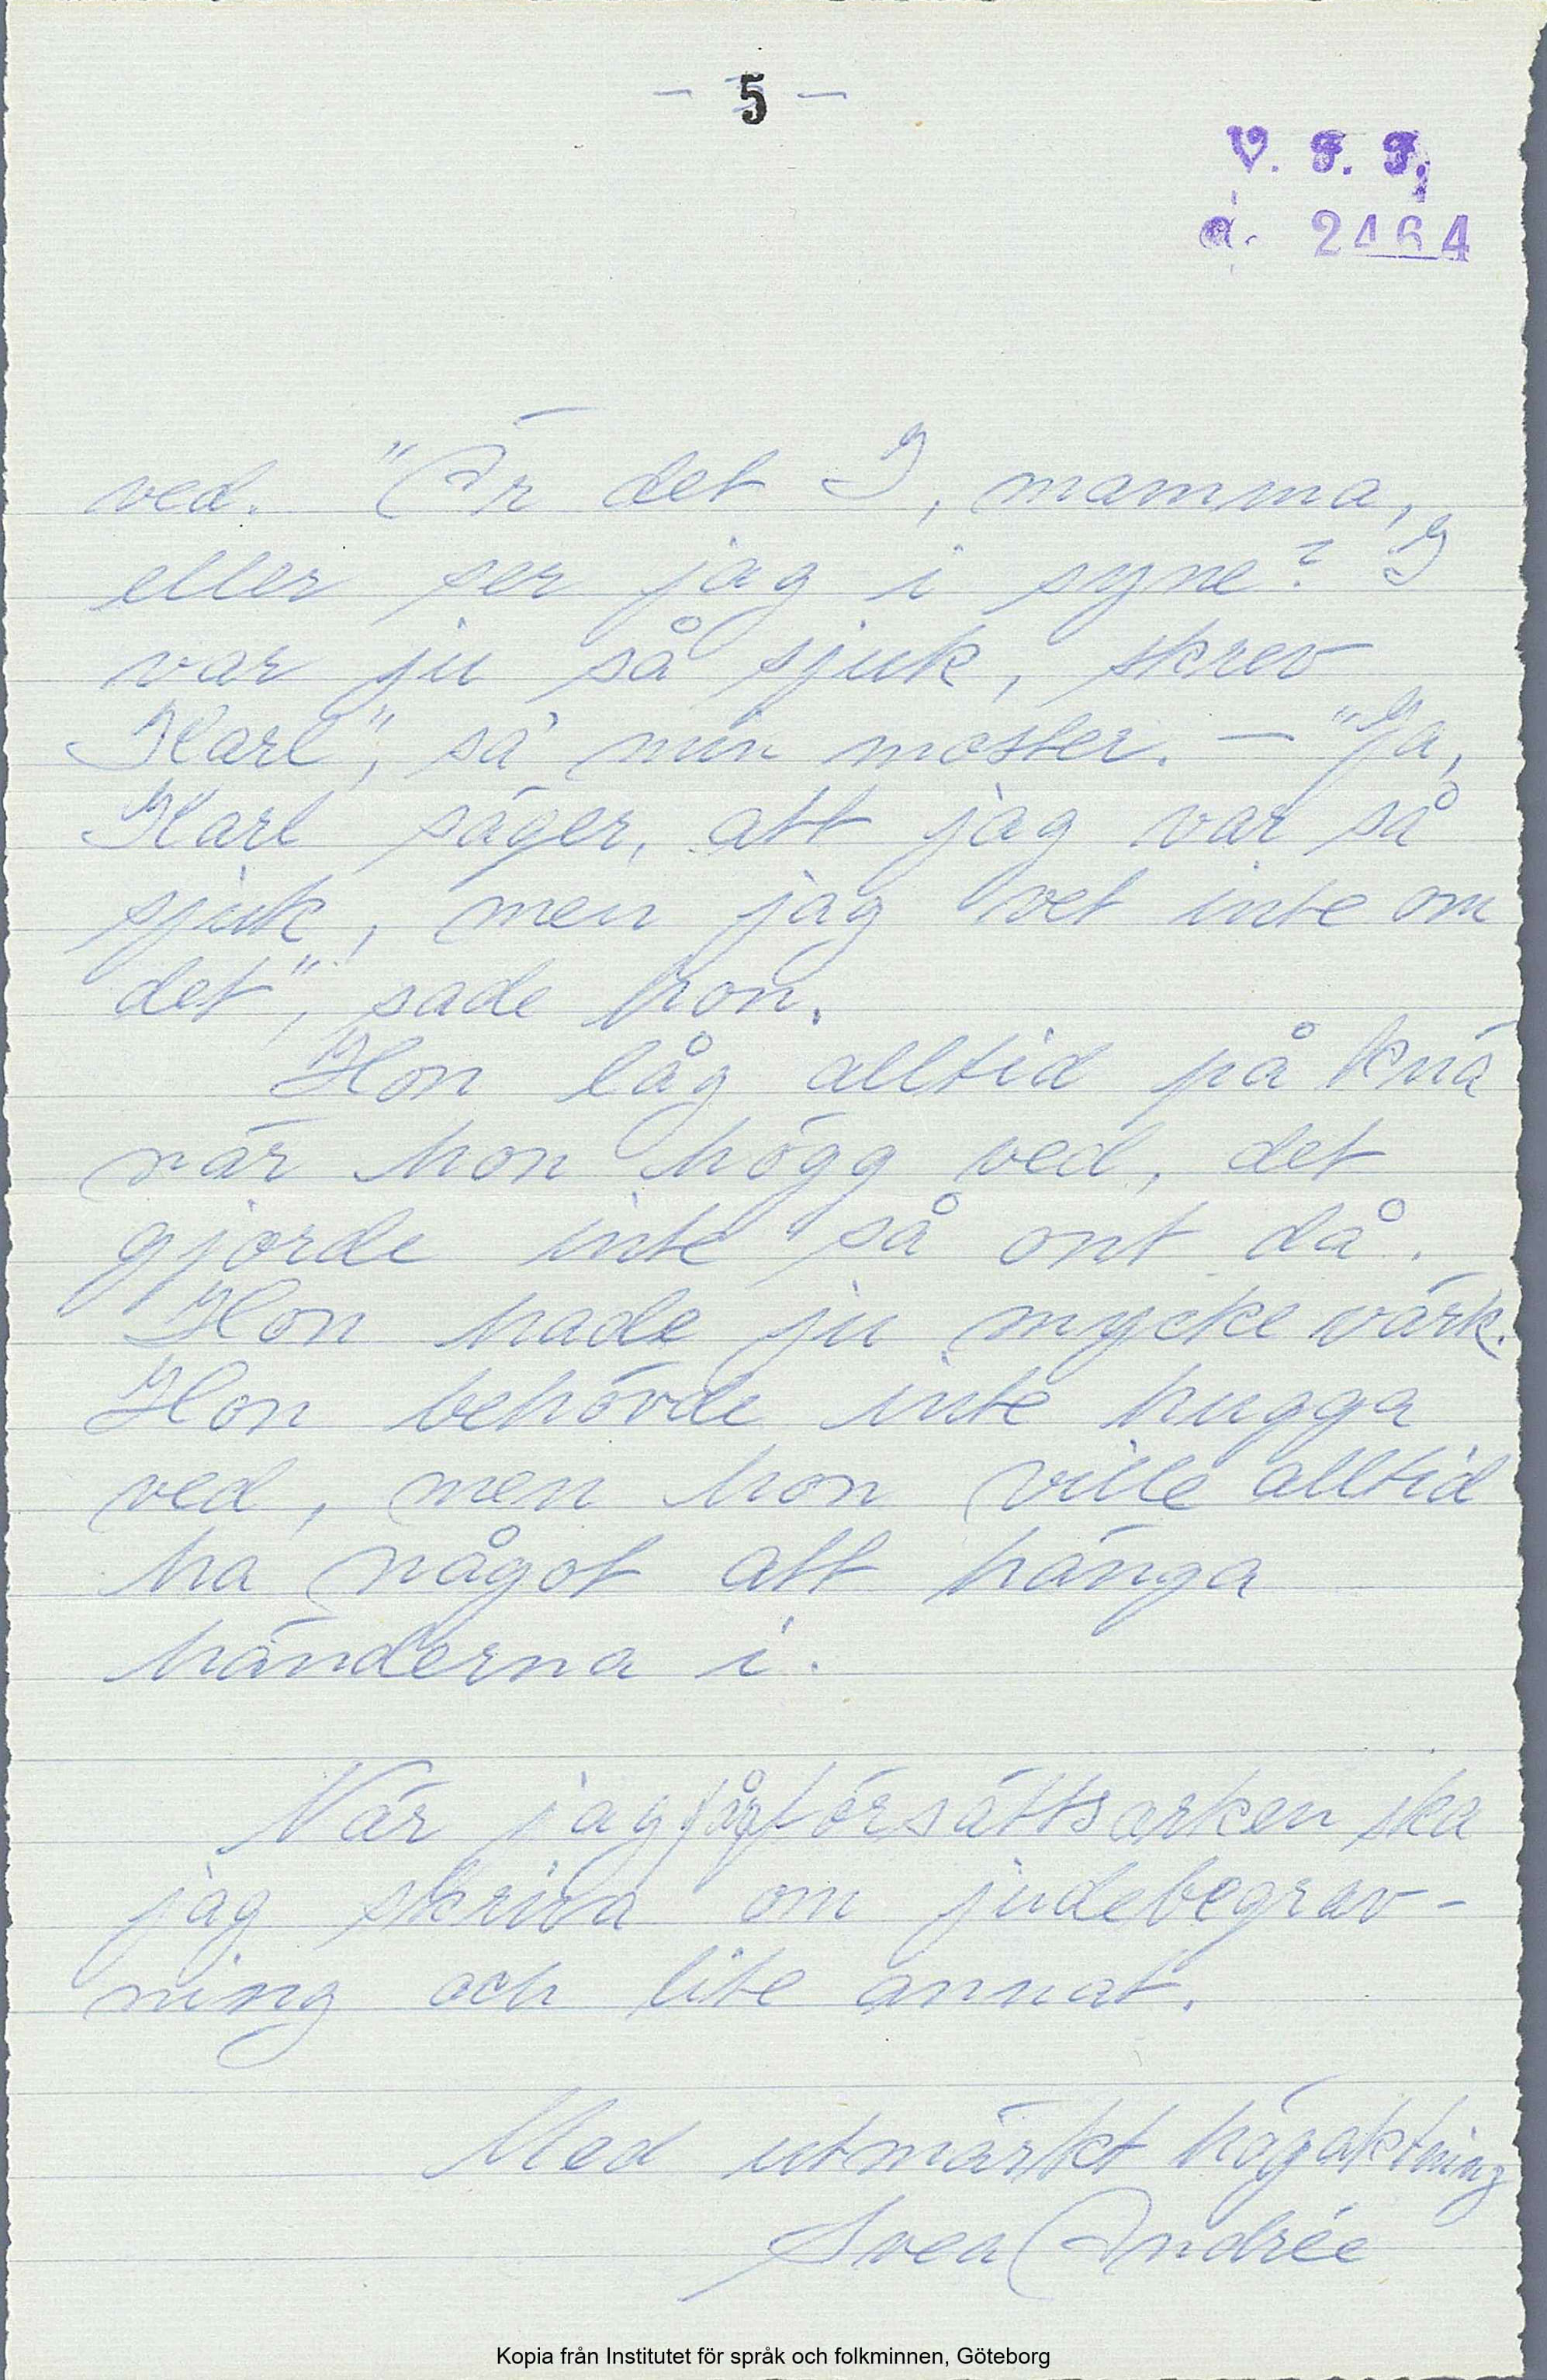 - 5 -
V. F. F.
a. 2464
ved. "Är det I, mamma,
eller ser jag i syne? I
var ju så sjuk, skrev
Karl", sa min moster. – "Ja,
Karl säger, att jag var så
sjuk, men jag vet inte om
det", sade hon.
Hon låg alltid på knä
när hon högg ved, det
gjorde inte så ont då.
Hon hade ju mycke värk.
Hon behövde inte hugga
ved, men hon ville alltid
ha något att hänga
händerna i.
När jag får försättsarken ska
jag skriva om judebegrav-
ning och lite annat.
Med utmärkt högaktning
Svea Andrée
Kopia från Institutet för språk och folkminnen, Göteborg